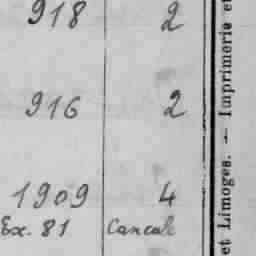 918 2
916 2
1909 4
Ex. 81 Cancale
et Limoges. — Imprimerie et